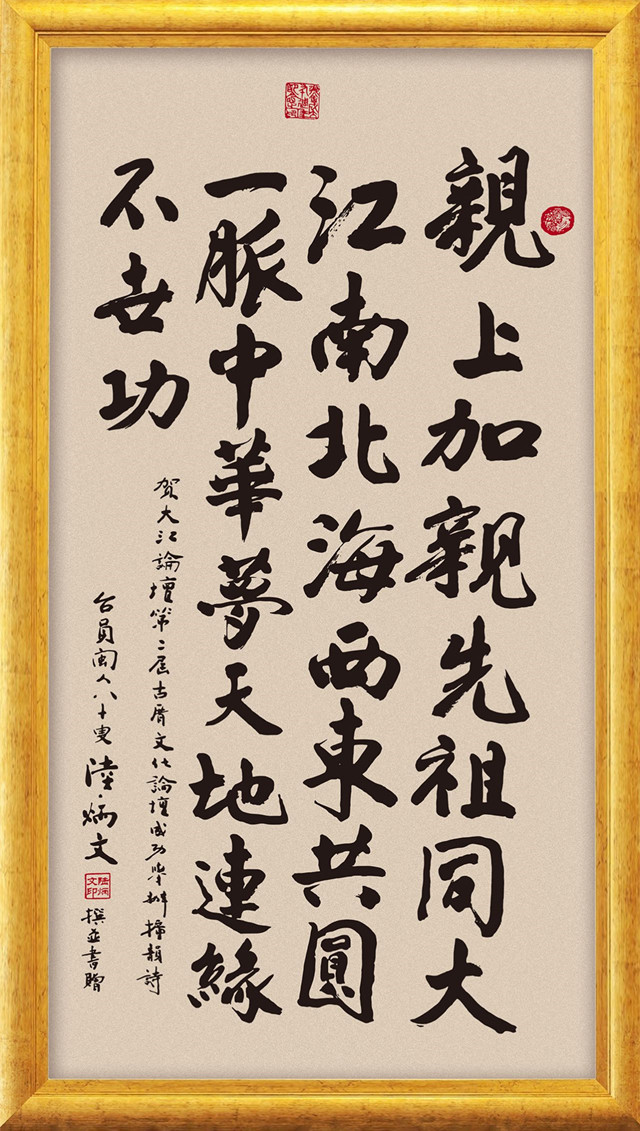 親上加親先祖同大
江南北海西東共圓
一脈中華夢天地連緣
不世功
賀大江論壇第二屆古厝文化論壇成功舉辦韻詩
台員閩人八十叟陸炳文撰並書贈
陸炳文印